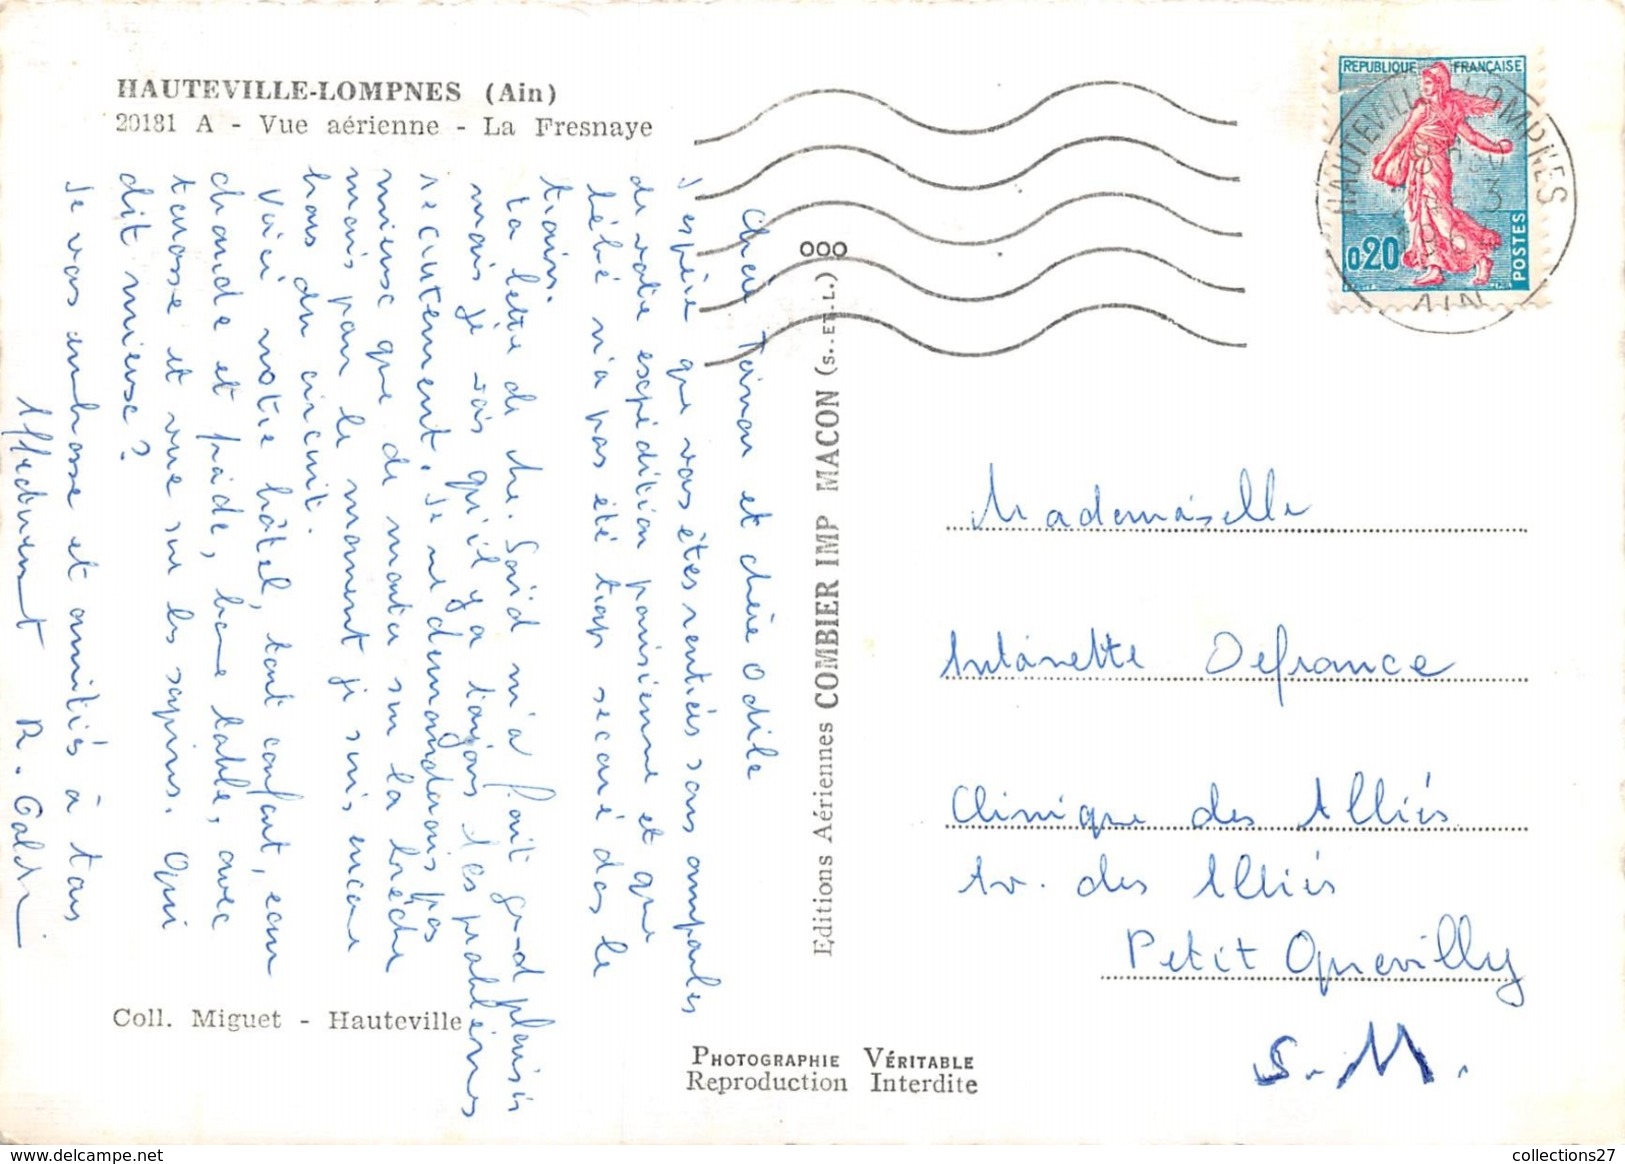 HAUTEVILLE-LOMPNES (Ain)
20181 A - Vue aérienne - La Fresnaye
Cher Toinon et chère Odile
J'espère que vous êtes rentrées sans ampoules
de votre expédition parisienne et que
bébé n'a pas été trop secoué ds le
train.
La lettre de Me. Saïd m'a fait grand plaisir
mais je vois qu'il y a toujours les problèmes
recrutement. Je ne demanderais pas
mieux que de monter sur la brèche
mais pour le moment je suis encore
hors du circuit.
Voici notre hôtel, tout confort, eau
chaude et froide, bonne table, avec
terrasse et vue sur les sapins. Qui
dit mieux ?
Je vous embrasse et amitiés à tous
Affectueusement R. Galdi
OOO
Editions Aériennes COMBIER IMP MACON (S. ET. L.)
REPUBLIQUE FRANÇAISE
0,20
POSTES
HAUTEVILLE LOMPNES
AIN
Mademoiselle
Antoinette Defrance
Clinique des Alliés
Av. des Alliés
Petit Quevilly
S.M.
Coll. Miguet - Hauteville
PHOTOGRAPHIE VÉRITABLE
Reproduction Interdite
https://www.delcampe.net
collections27